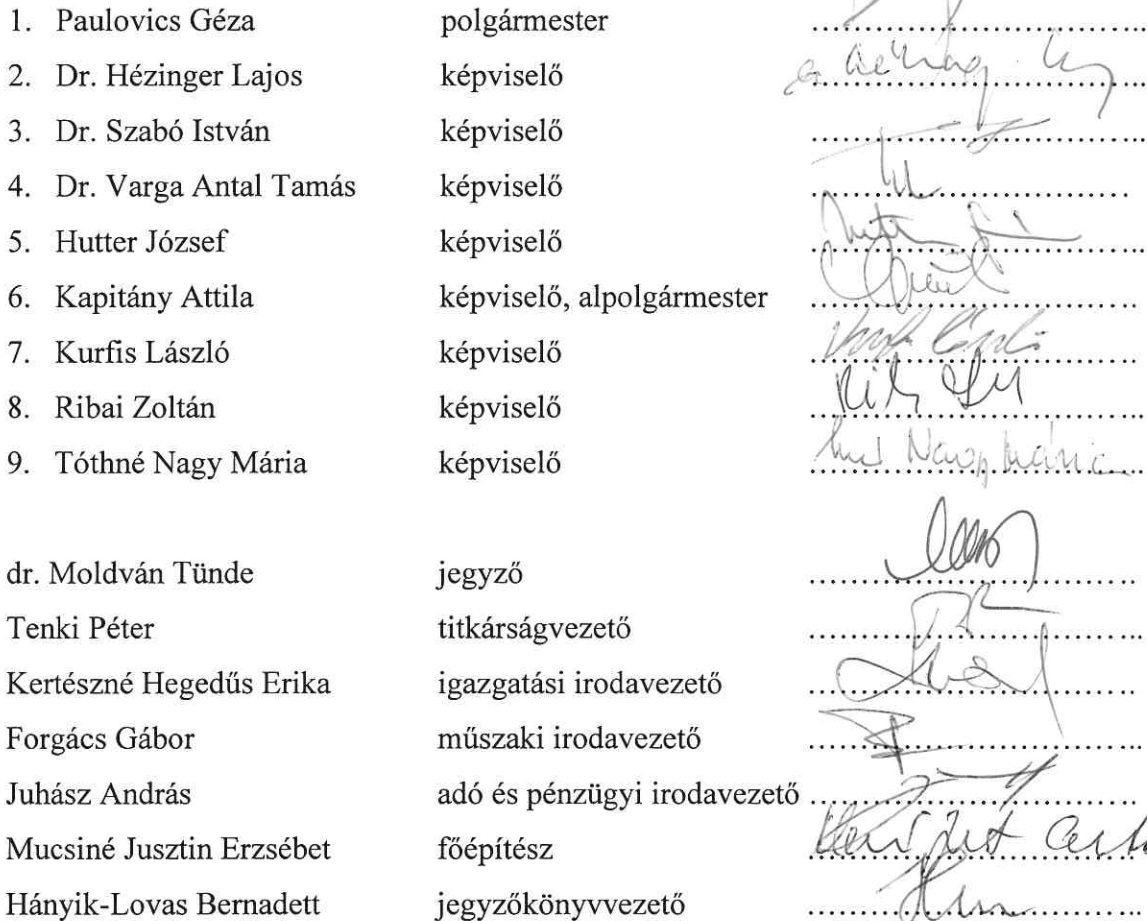 1. Paulovics Géza polgármester
2. Dr. Hézinger Lajos képviselő
3. Dr. Szabó István képviselő
4. Dr. Varga Antal Tamás képviselő
5. Hutter József képviselő
6. Kapitány Attila képviselő, alpolgármester
7. Kurfis László képviselő
8. Ribai Zoltán képviselő
9. Tóthné Nagy Mária képviselő Nagy Mária
dr. Moldván Tünde jegyző
Tenki Péter titkárságvezető
Kertészné Hegedűs Erika igazgatási irodavezető
Forgács Gábor műszaki irodavezető
Juhász András adó és pénzügyi irodavezető
Mucsiné Jusztin Erzsébet főépítész
Hányik-Lovas Bernadett jegyzőkönyvvezető